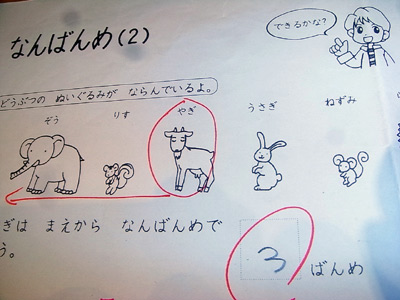 なんばんめ(2)
できるかな?
どうぶつの ぬいぐるみが ならんでいるよ。
ぞう りす やぎ うさぎ ねずみ
ぎは まえから なんばんめで
う。
3 ばんめ